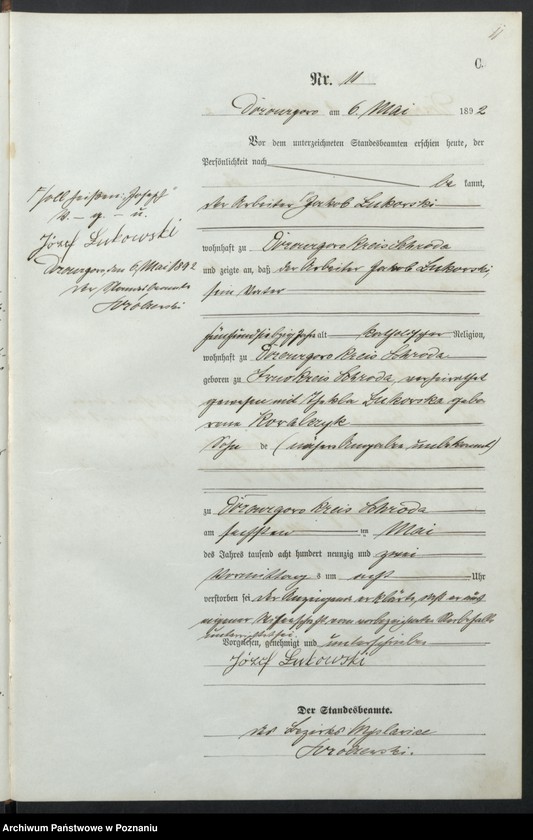 11
C.
Nr. 11
am 6. Mai 1892
Vor dem unterzeichneten Standesbeamten erschien heute, der
Persönlichkeit nach
be kannt,
der Arbeiter Jakob Lukowski
wohnhaft zu Kreis Schroda
und zeigte an, daß der Arbeiter Jakob Lukowski
sein Vater
fünfundsiebzig Jahre alt katholischer Religion,
wohnhaft zu Kreis Schroda
geboren zu Kreis Schroda, verheirathet
gewesen mit Thekla Lukowska gebo
rene Kowalczyk
Sohn de (nähere Angaben unbekannt)
zu Kreis Schroda
am sechsten Mai
des Jahres tausend acht hundert neunzig und zwei
Vormittags um acht Uhr
verstorben sei, der Anzeigende erklärte, daß er aus
eigener Wissenschaft vom Sterbefalle
unterrichtet sei.
Vorgelesen, genehmigt und unterschrieben
Józef Lukowski
Der Standesbeamte.
des Bezirks
"soll heißen: Joseph"
v. - g. - u.
Józef Lukowski
den 6. Mai 1892
Der Standesbeamte
Archiwum Państwowe w Poznaniu